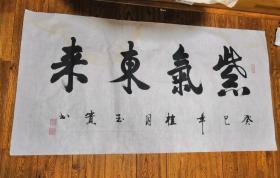 紫氣東来
癸巳年桂月玉貴书